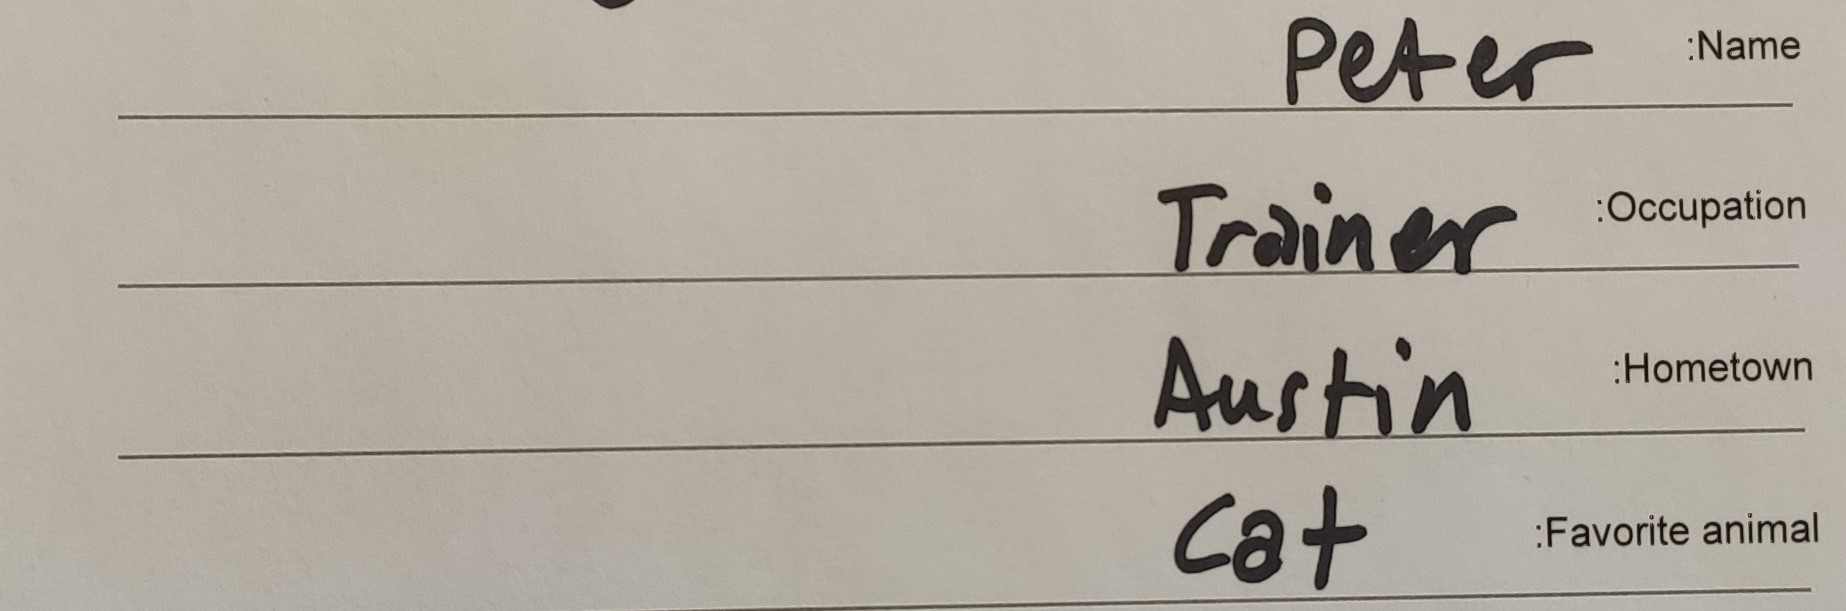 :Name Peter
:Occupation Trainer
:Hometown Austin
:Favorite animal Cat